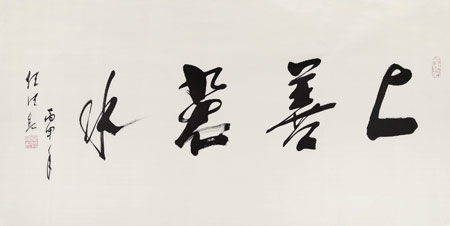 上善若水
丙申年
任法融